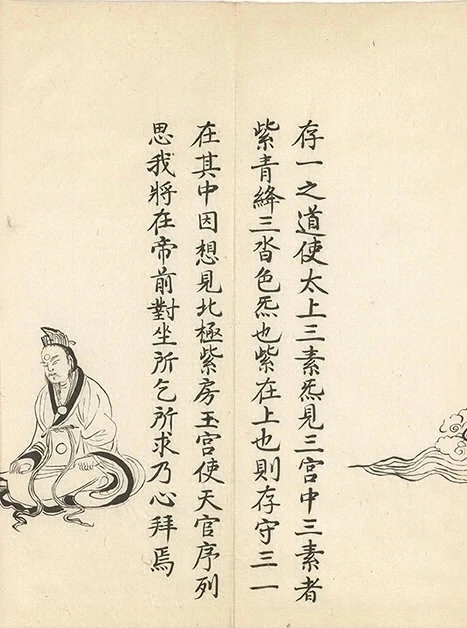 存一之道使太上三素炁見三宮中三素者
紫青絳三沓色炁也紫在上也則存守三一
在其中因想見北極紫房玉宮使天官序列
思我將在帝前對坐所乞所求乃心拜焉